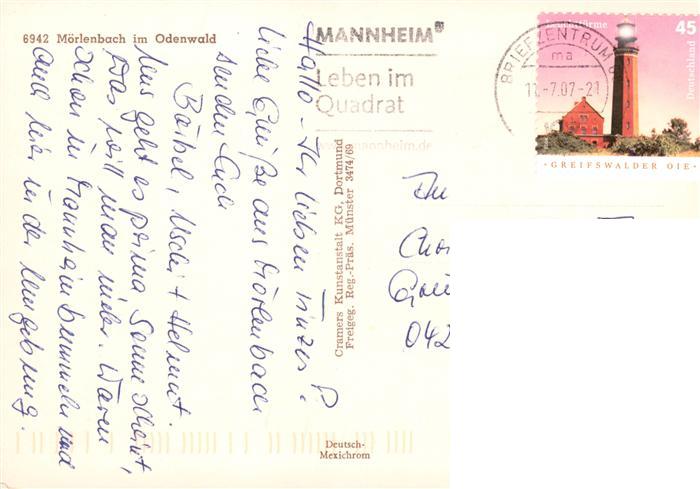 6942 Mörlenbach im Odenwald
MANNHEIM
Leben im
Quadrat
www.mannheim.de
BRIEFZENTRUM
ma
-7.07-21
Leuchttürme
45
Deutschland
GREIFSWALDER OIE
Hallo - Ihr lieben
liebe Grüße aus Mörlenbach
senden Euch
Bärbel, Uschi + Helmut.
Uns geht es prima Sonne scheint,
was will man mehr. Waren
schon in Mannheim bummeln und
auch hier in der Umgebung.
Cramers Kunstanstalt KG, Dortmund
Freigeg. Reg.-Präs. Münster 3474/69
An
042
Deutsch-
Mexichrom